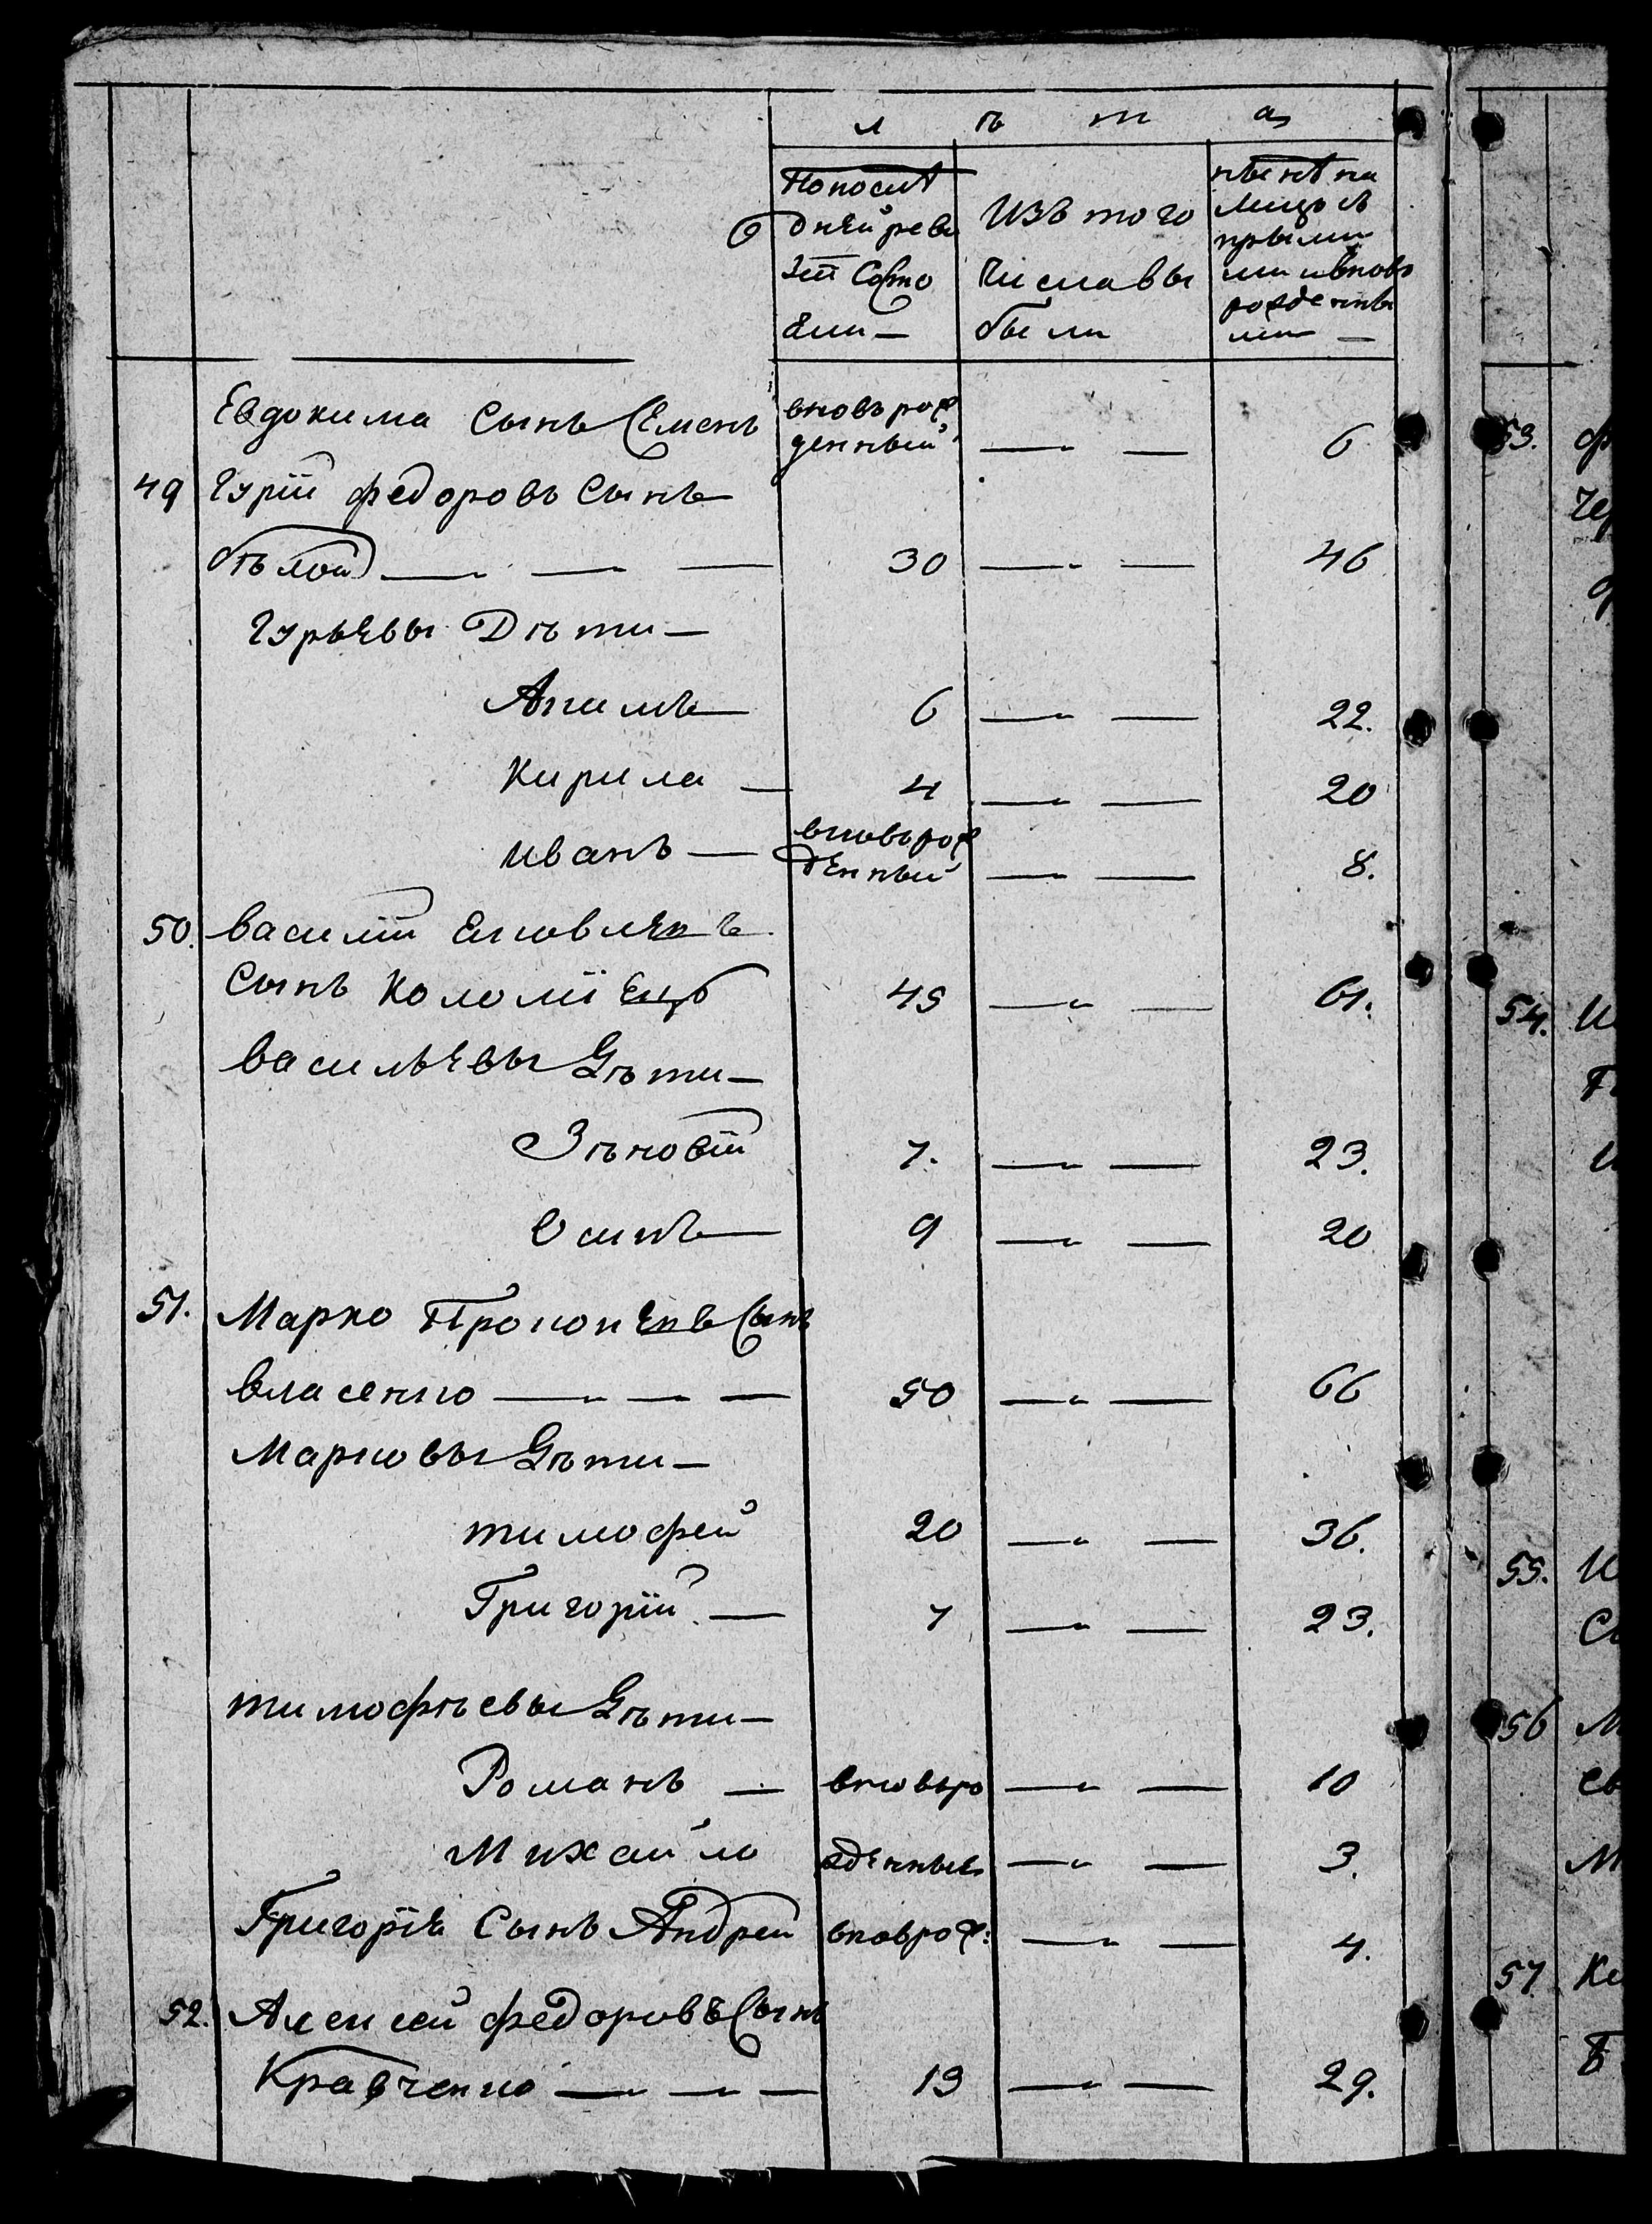 лѣта
Попослѣ
дней реви
зіи Состо
Ели —
Изъ того
Числа вы
были
нынѣ на
лицо съ
прылы
ми и вновь
рожденны
ми —
Евдокима Сынъ Семенъ вновь рож 6
денный
49 Гурій федоровъ Сынъ
бѣлой 30 46
Гурьевы Дѣти —
Акимъ 6 22.
Кирила — 4 20
Иванъ — вновь рож 8.
денный
50. василій Яковлевъ
Сынъ Коломіецъ 45 61.
васильевы Дѣти —
Зѣновій 7. 23.
Осипъ 9 20
51. Марко Прокопьевъ Сынъ
власенко 50 66
Марковы Дѣти —
тимофей 20 36.
Григорій — 7 23.
тимофѣевы Дѣти —
Романъ — вновьро 10
Михайло жденные 3.
Григорія Сынъ Андрей вноврож: 4.
52. Алексей федоровъ Сынъ
Кравченко 13 29.
53. ф
Че
54. И
55. И
Сы
56 М
М
57